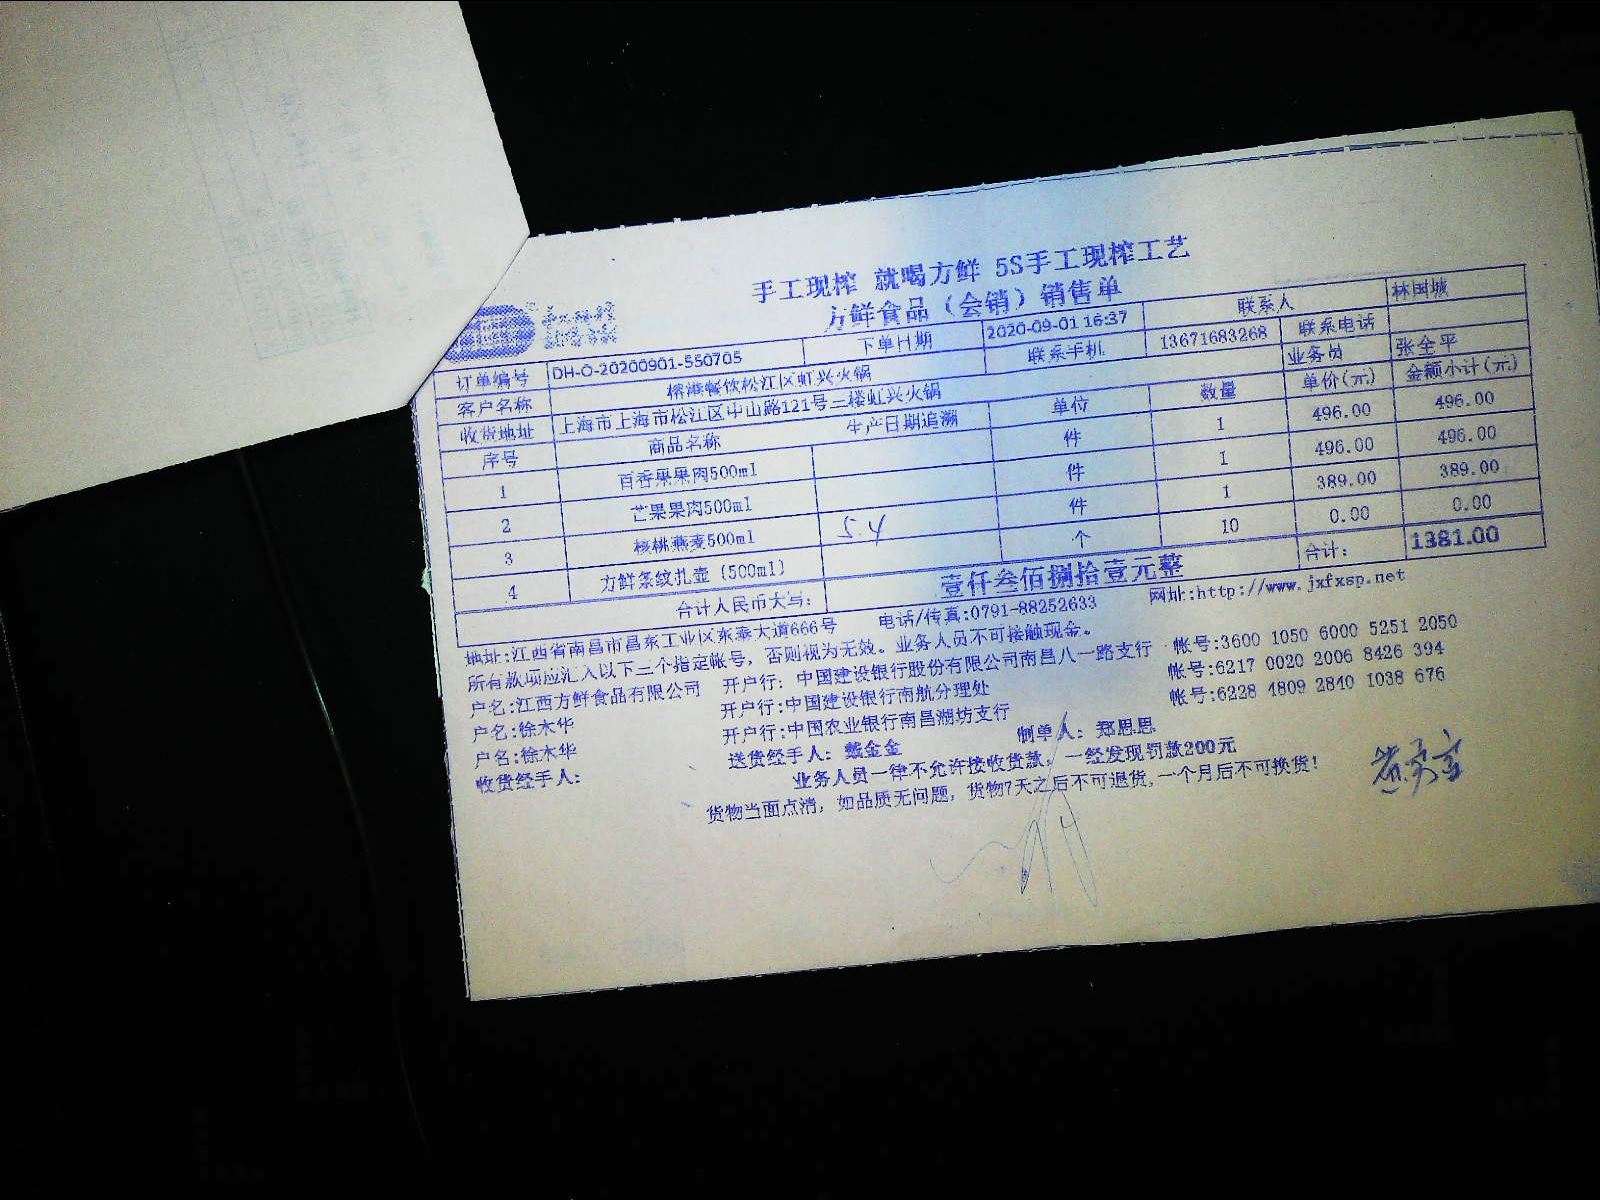 手工现榨 就喝方鲜 5S手工现榨工艺
方鲜食品（会销）销售单
订单编号 DH-O-20200901-550705 下单日期 2020-09-01 16:37 联系人 林国城
客户名称 榕港餐饮松江区虹兴火锅 联系手机 13671683268 联系电话
收货地址 上海市上海市松江区中山路121号二楼虹兴火锅 业务员 张全平
序号 商品名称 生产日期追溯 单位 数量 单价(元) 金额小计(元)
1 百香果果肉500ml 件 1 496.00 496.00
2 芒果果肉500ml 件 1 496.00 496.00
3 核桃燕麦500ml 5.4 件 1 389.00 389.00
4 方鲜条纹扎壶 (500ml) 个 10 0.00 0.00
合计人民币大写: 壹仟叁佰捌拾壹元整 合计: 1381.00
地址:江西省南昌市昌东工业区东泰大道666号 电话/传真:0791-88252633 网址:http://www.jxfxsp.net
所有款项应汇入以下三个指定帐号，否则视为无效。业务人员不可接触现金。
户名:江西方鲜食品有限公司 开户行: 中国建设银行股份有限公司南昌八一路支行 帐号:3600 1050 6000 5251 2050
户名:徐木华 开户行:中国建设银行南航分理处 帐号:6217 0020 2006 8426 394
户名:徐木华 开户行:中国农业银行南昌湖坊支行 帐号:6228 4809 2840 1038 676
收货经手人: 送货经手人: 戴金金 制单人: 郑思思
业务人员一律不允许接收货款，一经发现罚款200元
货物当面点清，如品质无问题，货物7天之后不可退货,一个月后不可换货!